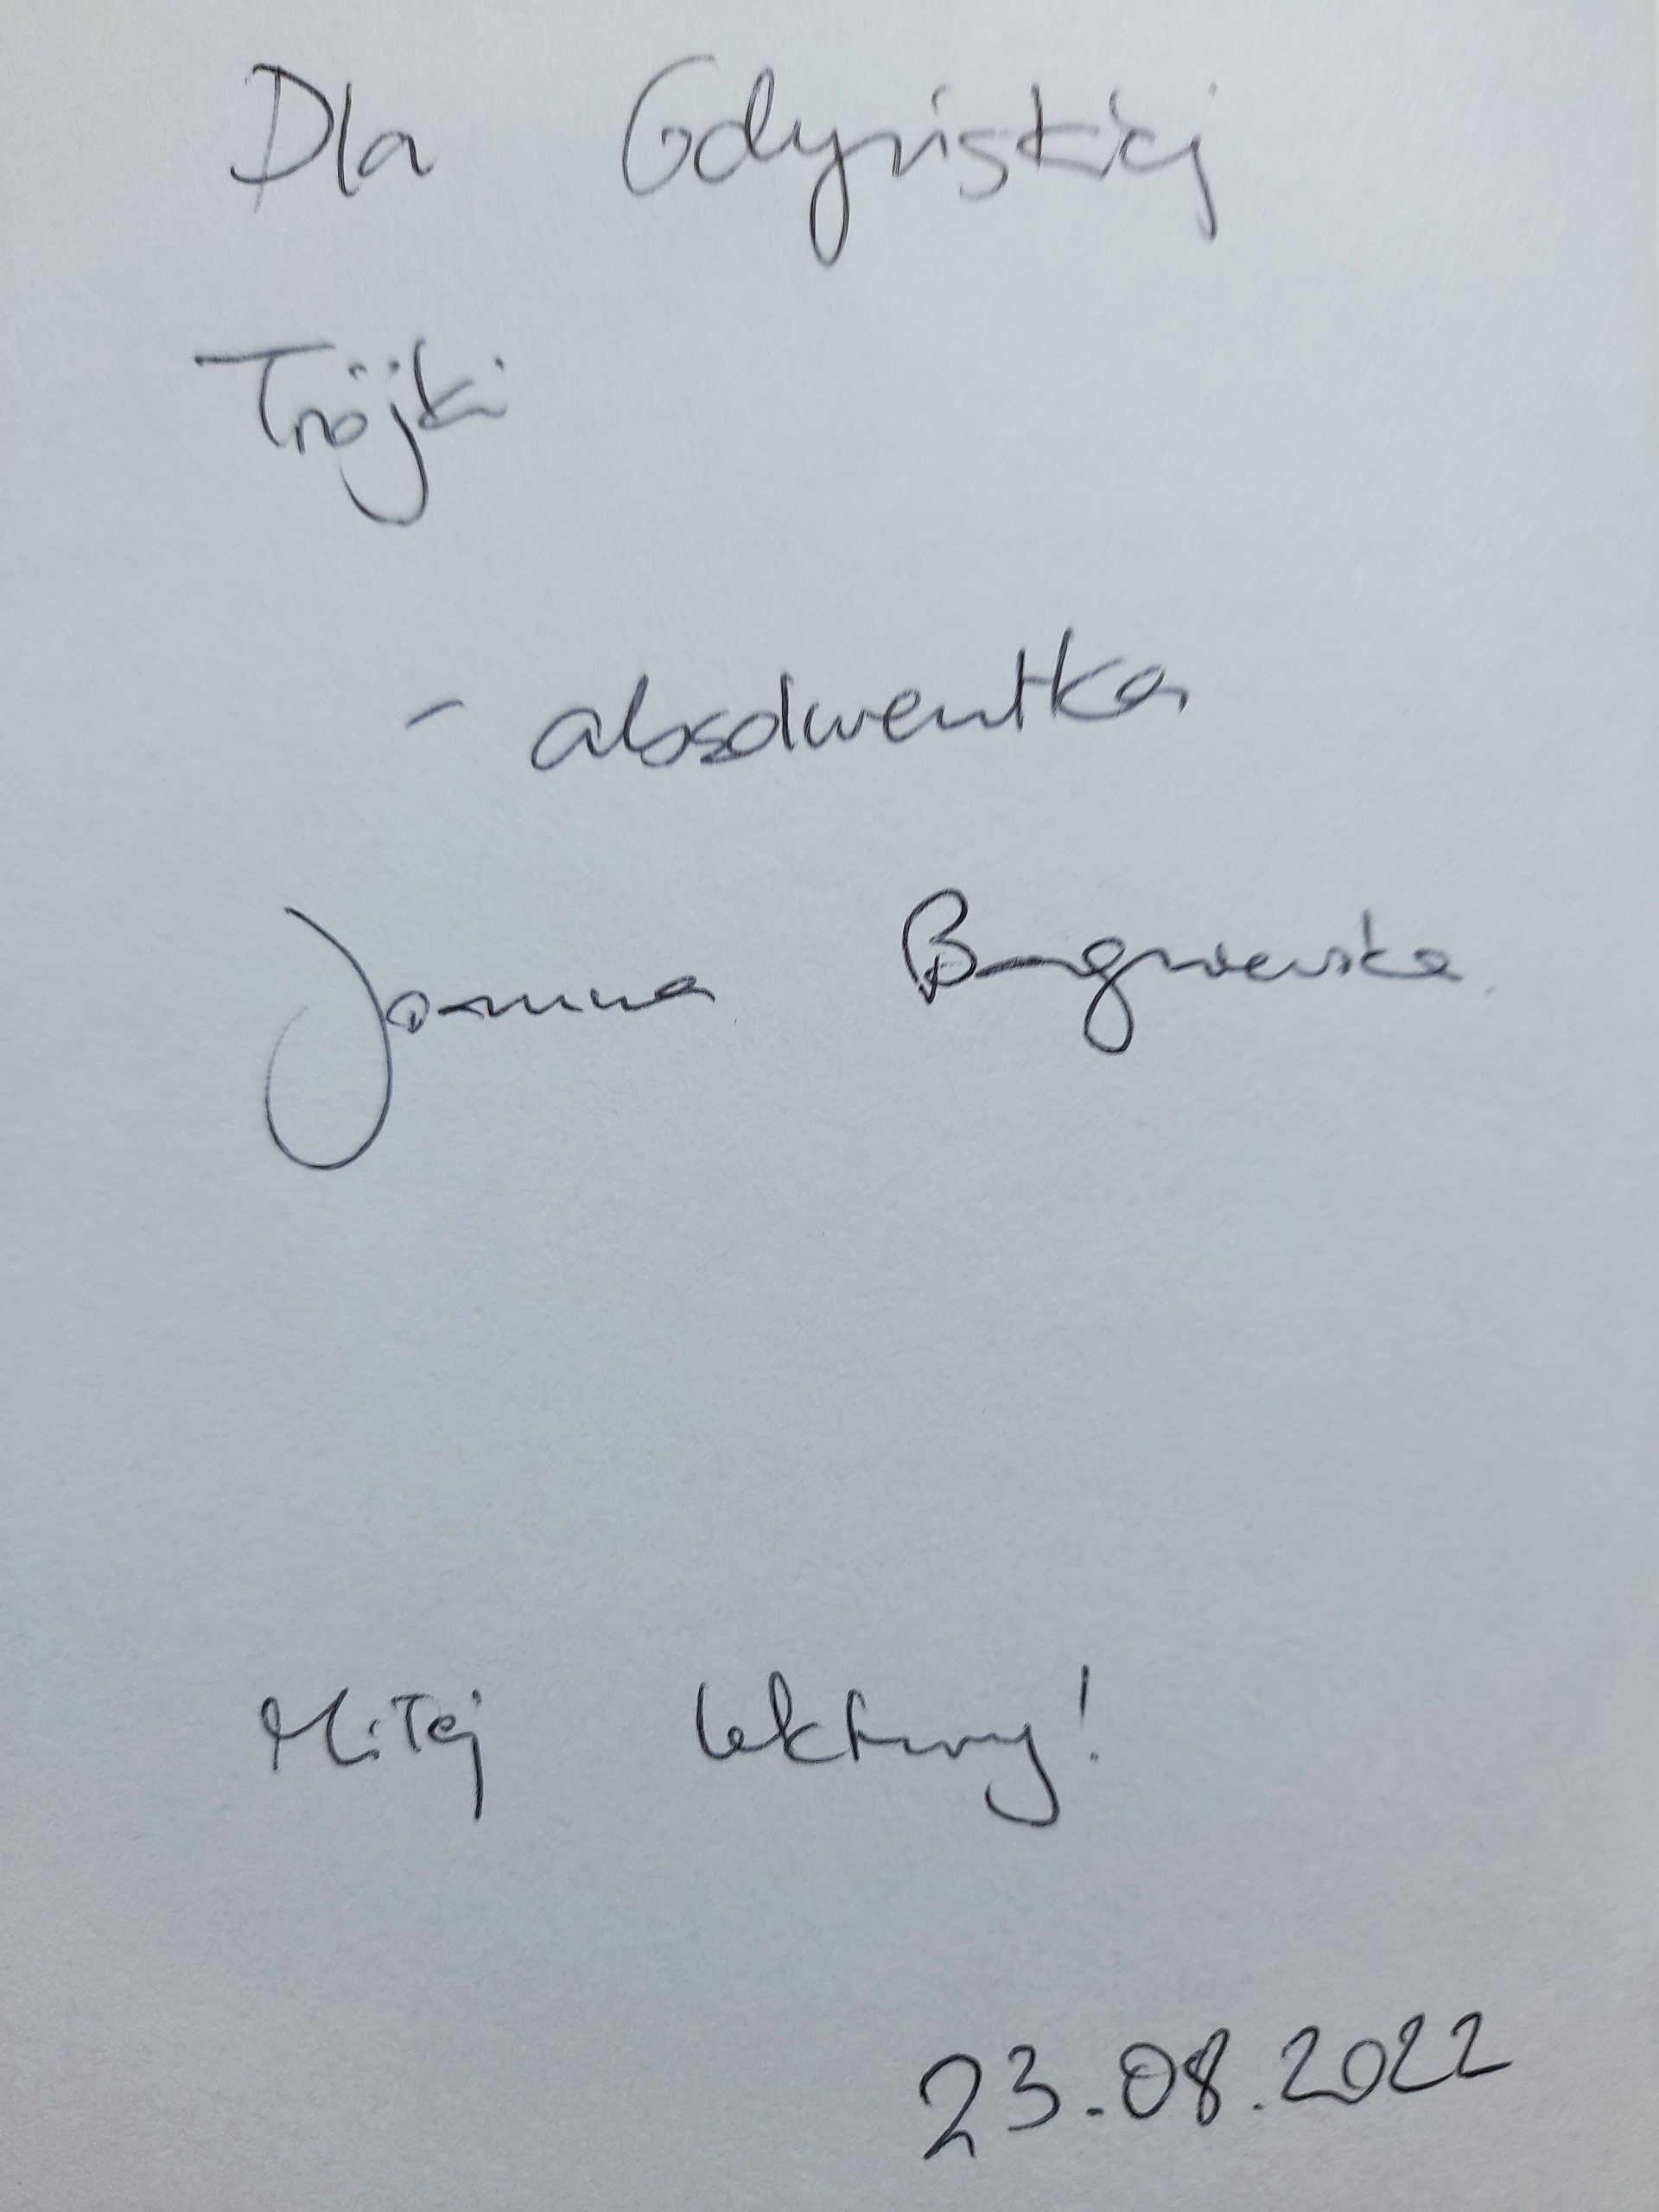 Dla Gdyńskiej
Trójki
- absolwentka
Joanna
Miłej lektury!
23.08.2022